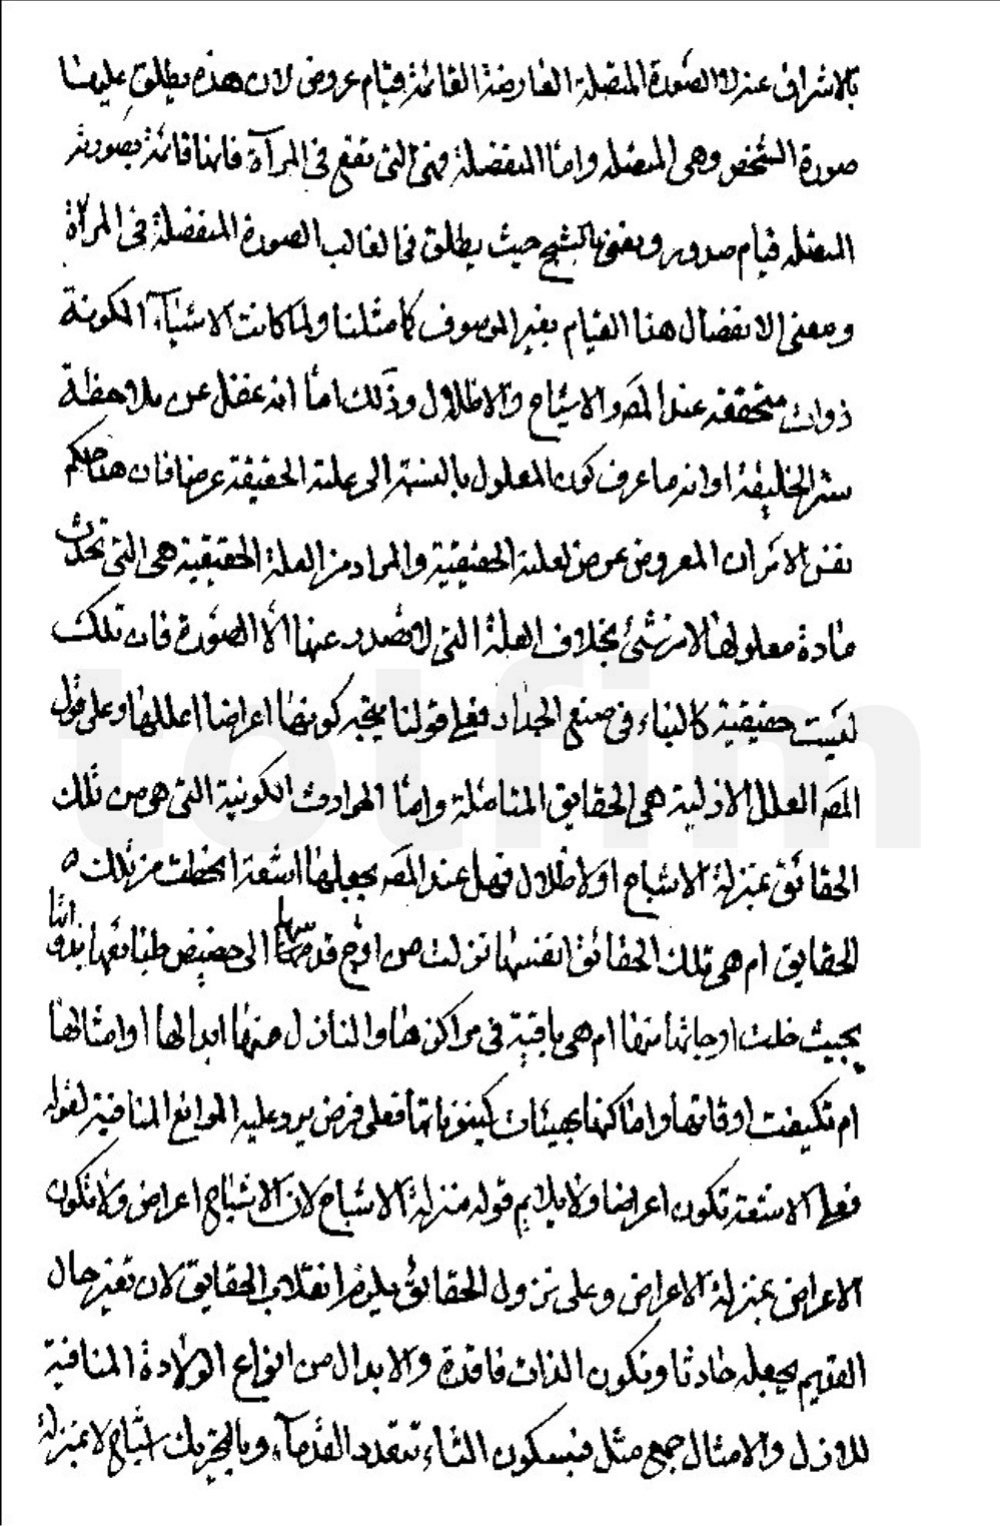 بالاشراق عندك الصورة المتصلة العارضة القائمة قيام عروض لان هذه يطلق عليها
صورة الشخص وهى المتصله واما المنفصلة فهى التى تقع فى المرآة فانها قائمة بصورته
المتصله قيام صدور ونعنى بالشبح حيث يطلق فى الغالب الصورة المنفصلة فى المرآة
ومعنى الانفصال هنا القيام بغير الموصوف كما مثلنا ولما كانت الاشياء المكونة
ذوات متحققة عند المصَ والاشباح والاظلال وذلك اما انه غفل عن ملاحظة
ستر الخليقة او انه ما عرف كون المعلول بالنسبة الى علته الحقيقة عرضا فان هنا حكم
نفس الامر ان المعروض عرض لعلته الحقيقية والمراد من العلة الحقيقية هى التى تحدث
مادة معلولها لا من شئ بخلاف العلة التى لا تصدر عنها الا الصورة فان تلك
ليست حقيقية كالبناء فى صنع الجدار فعلى قولنا يتجه كونها اعراضا لعللها وعلى قول
المصَ العلل الازلية هى الحقايق المتاصلة واما الحوادث الكونية التى هى من تلك
الحقائق بمنزلة الاشباح او الاظلال فهل عند المصَ يجعلها اشعة انحطت من تلك
الحقايق ام هى تلك الحقائق انفسها تنزلت من اوج قدسها الى حضيض طبائعها بذواتها
بحيث خلت اوجاتها منها ام هى باقية فى مراكزها والنازل منها ابدالها او امثالها
ام تكيفت اوقاتها واماكنها بهيئات كينوناتها فعلى فرض يرد عليه الموانع المنافية لقوله
فعلى الاشعة تكون اعراضا ولا يلايم قوله منزلة الاشباح لان الاشباح اعراض ولا تكون
الاعراض بمنزلة الاعراض وعلى نزول الحقائق يلزم انقلاب الحقايق لان تغير حال
القديم يجعله حادثا وتكون الذات فاقدة والابدال من انواع الولادة المنافية
للازل والامثال جمع مثل فبسكون الثاء تتعدد القدماء وبالتحريك اشباح لا بمنزلة